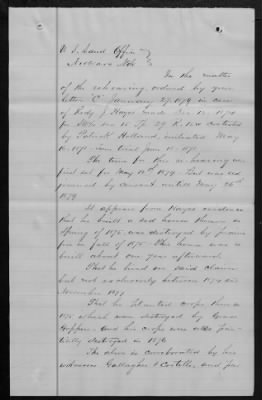 U.S. Land Office
Niobrara Neb.
In the matter
of the rehearing, ordered by your
letter "C" January 29th 1879 in case
of Rody J. Hayes made Dec
for Sec 10 Tp 29 R. contested
by Patrick Holland, initiated May
1878 trial June 1878.
The time for this rehearing was
first set for May 19th 1879 but was
by consent until May 26th
1879
It appears from Hayes evidence
that he built a sod house thereon in
Spring of 1875, was destroyed by prairie
fire in fall of 1875. This house was re
built about one year afterwards.
That he lived on said claim
but not exclusively between 1874 and
November 1877
That he planted crops thereon
1875 which were destroyed by Grass
Hoppers. And his crops were also par
tially destroyed in 1876
The above is corroborated by his
witnesses Gallagher & Costello, and